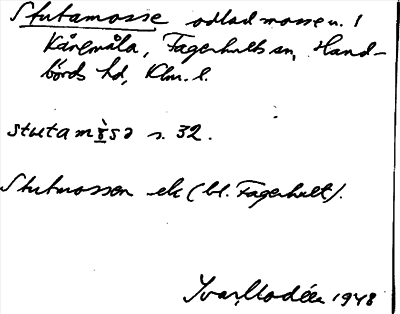 Stutamosse odlad mosse u. 1
Kåremåla, Fagerhults sn, Hand-
börds hd, Klm. l.
stutamɤ̀sə s. 32.
Stutmossen ek (bl. Fagerhult).
Ivar Modéer 1948